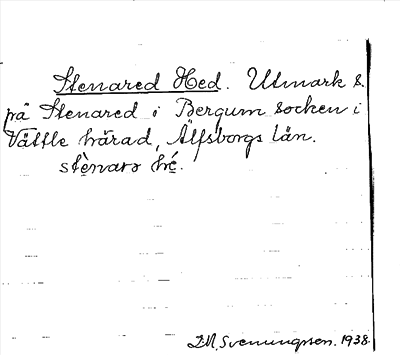 Stenared Hed. Utmark s.
på Stenared i Bergum socken i
Vättle härad, Älfsborgs län.
stènarə hé.
D.A. Svenungsson. 1938.